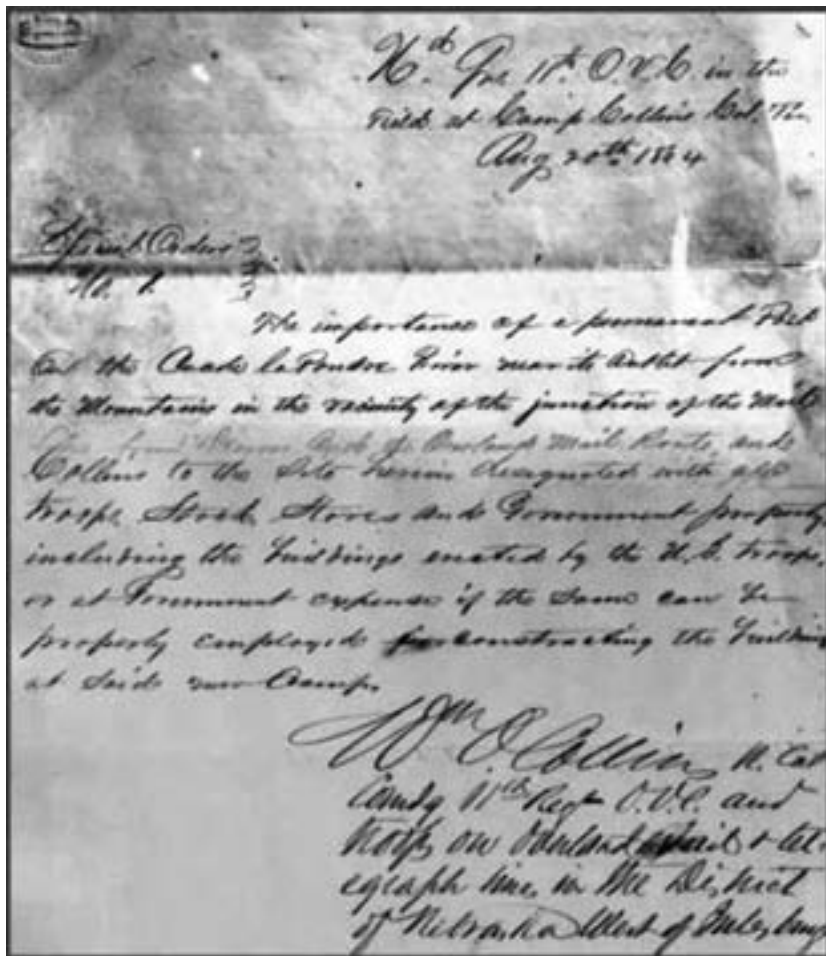 Hd. Qrs 11th. O.V.C. in the
Field at Camp Collins Col. Ter
Aug 20th 1864
Special Orders
No. 1.
The importance of a permanent Post
on the Cache la Poudre River near its outlet from
the Mountains in the vicinity of the junction of the Mail
Mail Route, and
Collins to the Site herein designated with all
troops, Stock, Stores and Government property,
including the buildings erected by the U.S. troops,
or at Government expense if the same can be
properly employed for constructing the building
at said new Camp.
Wm O Collins
Comdg 11th Regt O.V.C. and
troops on Overland Mail & tel-
egraph line, in the District
of Nebraska West of Julesburg